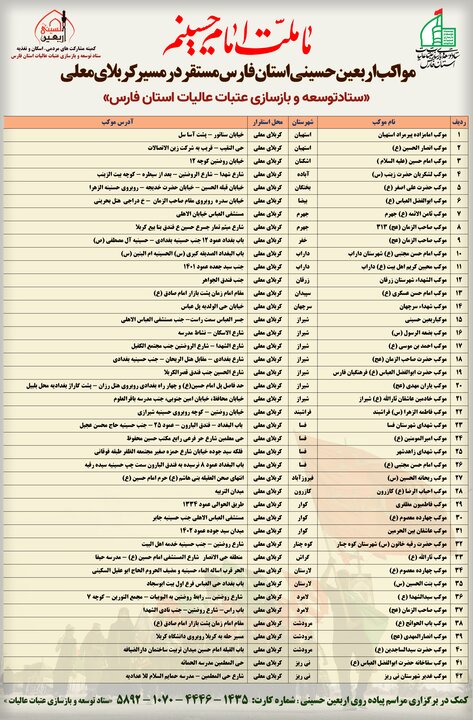 ما ملت امام حسینیم
مواکب اربعین حسینی استان فارس مستقر در مسیر کربلای معلی
«ستاد توسعه و بازسازی عتبات عالیات استان فارس»
کمیته مشارکت های مردمی، اسکان و تغذیه
ستاد توسعه و بازسازی عتبات عالیات استان فارس
ردیف نام موکب شهرستان محل استقرار آدرس موکب
۱ موکب امامزاده پیرمراد استهبان استهبان کربلای معلی خیابان سناتور - پشت آسا سل
۲ موکب انصار الحسین (ع) استهبان کربلای معلی حی النقیب - قریب به شرکت زین الاتصالات
۳ موکب امام حسین (علیه السلام) اشکنان کربلای معلی خیابان روضتین کوچه ۱۲
۴ موکب لشکریان حضرت زینب (س) آباده کربلای معلی شارع شهدا - شارع الروضتین - بعد از سیطره - کوچه بیت الزینب
۵ موکب حضرت علی اصغر (ع) بختگان کربلای معلی خیابان قبله الحسین - خیابان حضرت خدیجه - روبروی حسینیه الزهرا
۶ موکب ابوالفضل العباس (ع) بیضا کربلای معلی خیابان سدره روبروی مقام صاحب الزمان - خ دراجی هتل بحرینی
۷ موکب ثامن الائمه (ع) جهرم جهرم کربلای معلی مستشفی العباس خیابان الاهلی
۸ موکب صاحب الزمان (عج) ۳۱۳ جهرم کربلای معلی شارع میثم تمار جسرع حسین ع فندق بنا بیع کربلا
۹ موکب صاحب الزمان (عج) خفر کربلای معلی باب بغداد عمود ۱۲ جنب حسینیه بغدادی - حسینیه آل مصطفی (ص)
۱۰ موکب امام حسن مجتبی (ع) شهرستان داراب داراب کربلای معلی باب البغداد الصدیقه کبری (س) الحسینیه ام البنین (س)
۱۱ موکب محبین کریم اهل بیت (ع) داراب داراب کربلای معلی جنب سید جمعه عمود ۱۴۰۱
۱۲ موکب الشهداء شهرستان زرقان زرقان کربلای معلی جنب فندق الجواهر
۱۳ موکب امام حسن عسکری (ع) سپیدان کربلای معلی مقام امام زمان پشت بازار امام صادق (ع)
۱۴ موکب شهداء سرچهان سرچهان کربلای معلی خیابان حی الولدیه پل عباس
۱۵ موکب یاربعین حسینی شیراز کربلای معلی جسر العباس سمت راست- جنب مستشفی العباس الاهلی
۱۶ موکب بضعه الرسول (س) شیراز کربلای معلی شارع الاسکان - نشاط مدرسه
۱۷ موکب احمد بن موسی (ع) شیراز کربلای معلی شارع الشهدا - شارع الروضتین جنب مجتمع الکفیل
۱۸ موکب حضرت صاحب الزمان (عج) شیراز کربلای معلی شارع بغدادی - مقابل هتل الریحان - جنب حسینیه بغدادی
۱۹ موکب حضرت ابوالفضل العباس (ع) فرهنگیان فارس شیراز کربلای معلی شارع الحسین جنب فندق قصر الکربلا
۲۰ موکب یاران مهدی (عج) شیراز کربلای معلی حد فاصل پل امام حسین(ع) و چهار راه بغدادی روبروی هتل رزان - پشت گاراژ بغدادیه محل بلبیل
۲۱ موکب خادمین عاشقان ثارالله (ع) شیراز شیراز کربلای معلی خیابان محافظه، خیابان امین جنوبی، جنب مدرسه باقر العلوم
۲۲ موکب فاطمه الزهرا (س) فراشبند فراشبند کربلای معلی خیابان روضتین - کوچه روبروی حسینیه شیرازی
۲۳ موکب شهدای شهرستان فسا فسا کربلای معلی باب البغداد - فندق البارون - عمود ۲۵ - جنب حسینیه حاج محسن هجیل
۲۴ موکب امیرالمومنین (ع) فسا کربلای معلی حی معلمین شارع حر فرعی رایع مکتب حسین محفوظ
۲۵ موکب شهدای زاهدشهر فسا کربلای معلی فلکه سید جوده خیابان شارع حمزه صغیر مجتمعه الظفر طبقه فوقانی
۲۶ موکب امام حسن مجتبی (ع) فسا کربلای معلی باب البغداد عمود ۸ نرسیده به فندق البارون سمت چپ حسینیه سیده رقیه
۲۷ موکب ریحانه الحسین (س) فیروزآباد کربلای معلی انتهای صحن العقیله بنی هاشم (ع) حرم امام حسین (ع)
۲۸ موکب احباب الرضا (ع) کازرون کازرون کربلای معلی میدان التربیه
۲۹ موکب فاطمیون مظفری کوار کربلای معلی طریق الحوالی عمود ۱۳۳۴
۳۰ موکب چهارده معصوم (ع) کوار کربلای معلی مستشفی العباس الاهلی جنب حسینیه جابر
۳۱ موکب عاشقان بین الحرمین کوار کربلای معلی میدان سید جوده عمود ۱۴۰۲
۳۲ موکب حضرت رقیه خاتون (س) شهرستان کوه چنار کوه چنار کربلای معلی شارع روضتین - جنب حسینیه خدمه اهل البیت
۳۳ موکب ثارالله (ع) گراش کربلای معلی منطقه حی الانصار شارع المستشفی امام حسین (ع) - مدرسه حیفا
۳۴ موکب چهارده معصوم (ع) لارستان کربلای معلی الحر قرب اساله الماء حسینیه و مضیف الحروم الحاج ابو عقیل السکینی
۳۵ موکب بنت الحسین (س) لارستان کربلای معلی باب بغداد حی العباس فرع اول بیت ابوسجاد
۳۶ موکب سیدالشهدا (ع) لامرد کربلای معلی شارع روضتین ... رابط روضتین به البوبیات - مجمع النورین - کوچه ۷
۳۷ موکب صاحب الزمان (عج) لامرد کربلای معلی باب راس- شارع روضتین- جنب نادی الشهدا
۳۸ موکب باب الحوائج (ع) مرودشت کربلای معلی مقام امام زمان پشت بازار امام صادق (ع)
۳۹ موکب انصار المهدی (عج) مرودشت کربلای معلی مسیر حله به کربلا روبروی دانشگاه کربلا
۴۰ موکب حضرت سیدالساجدین (ع) مرودشت کربلای معلی باب القبله امام حسین میدان تربیت ساختمان دارالضیافه
۴۱ موکب سقاخانه حضرت ابوالفضل العباس (ع) نی ریز کربلای معلی حی المعلمین مدرسه الحمائه
۴۲ موکب غدیر شهرستان نی ریز نی ریز کربلای معلی شارع حی المعلمین - مدرسه حمایم السلام للا عدادیه
کمک در برگزاری مراسم پیاده روی اربعین حسینی : شماره کارت: ۱۴۳۵ - ۴۴۴۶ - ۱۰۷۰ - ۵۸۹۲ «ستاد توسعه و بازسازی عتبات عالیات»